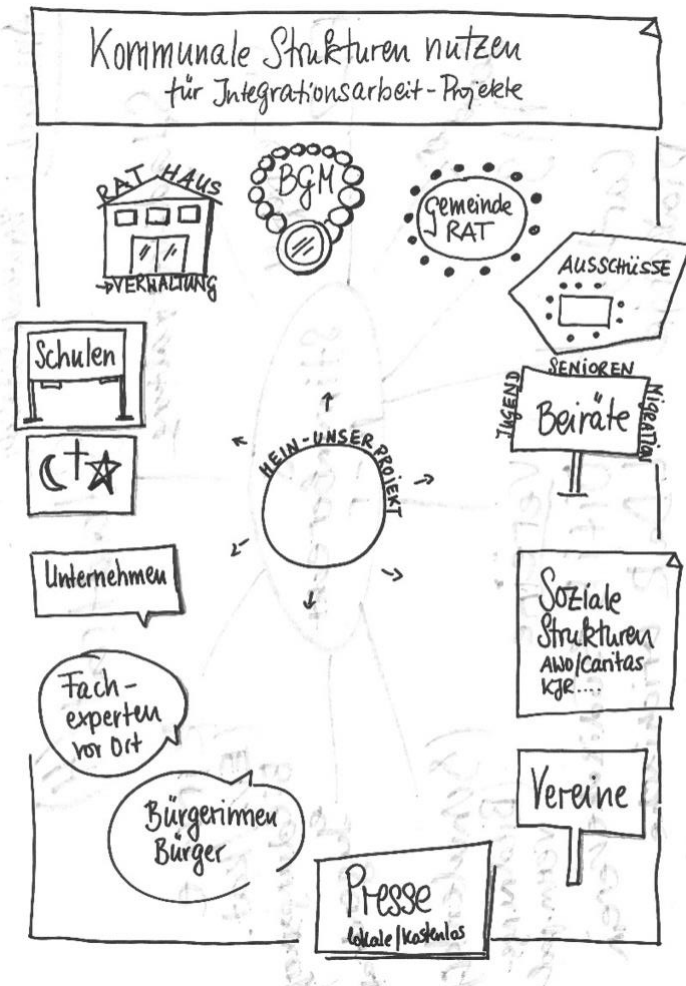 Kommunale Strukturen nutzen
für Integrationsarbeit-Projekte
RAT HAUS
VERWALTUNG
BGM
Gemeinde
RAT
AUSSCHÜSSE
Schulen
SENIOREN
JUGEND
Beiräte
MIGRATION
MEIN-UNSER PROJEKT
Unternehmen
Soziale
Strukturen
AWO/Caritas
KJR....
Fach-
experten
vor Ort
Vereine
Bürgerinnen
Bürger
Presse
lokale/kostenlos